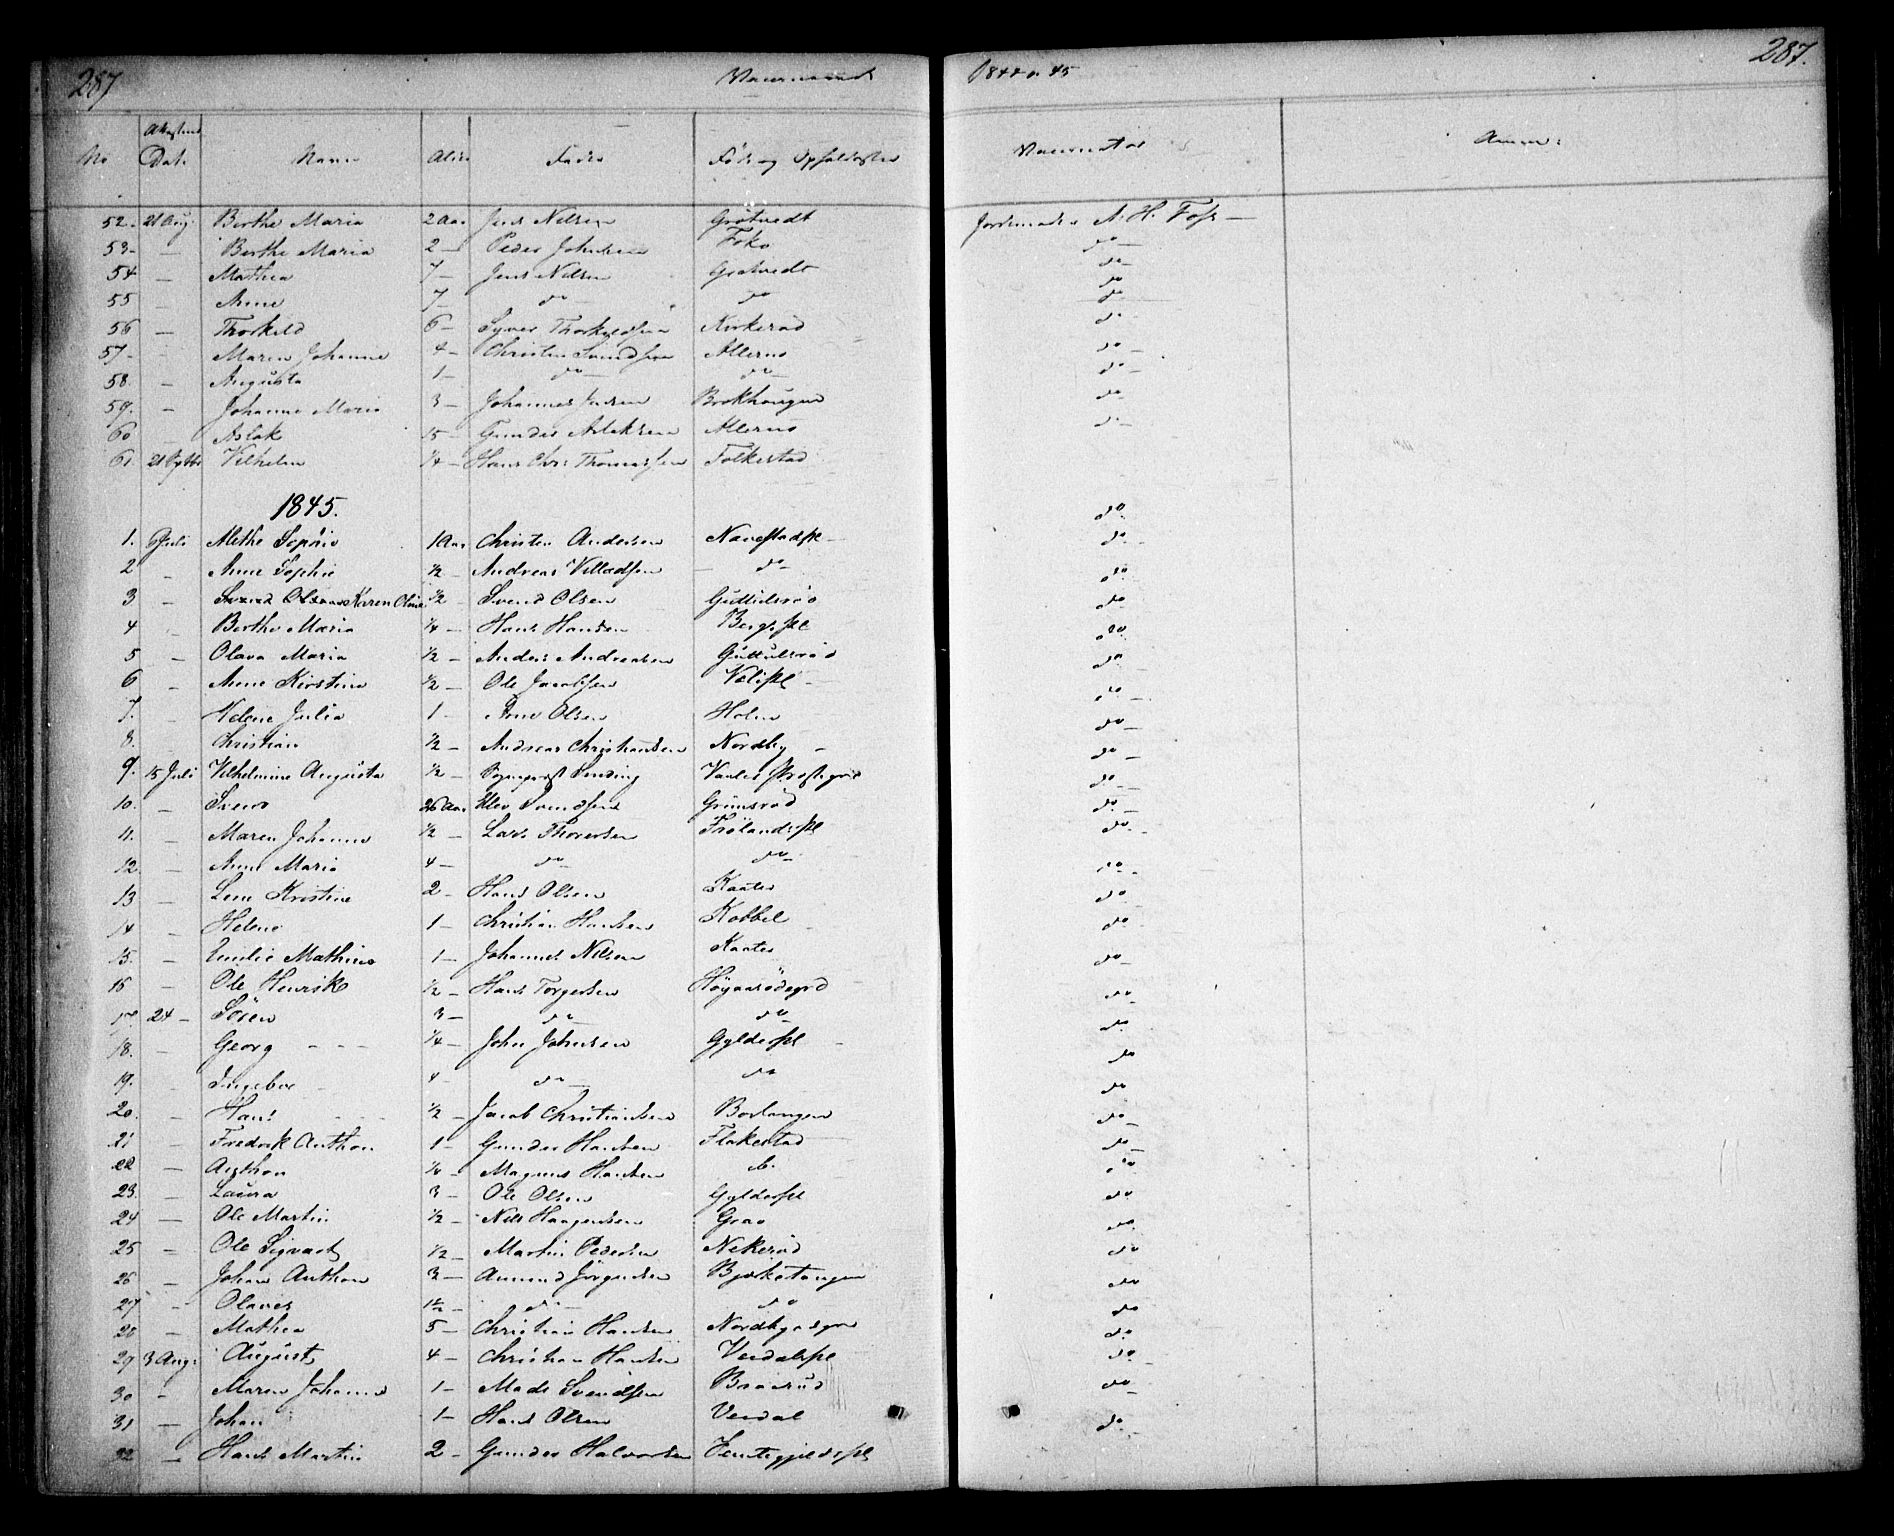 287 Vaccinerede 1844 og 45 287.
No Attestens Dat. Navn Alder Fader Føde og Opholdssted Vaccinatør Anm:
52. 21 Aug. Berthe Maria 2 Aar Jens Nilsen Grötvedt Jordemoder A. H. Foss —
53 — Berthe Maria 2 — Peder Johnsen do —
54 — Mathea 7 — Jens Nilsen Grötvedt do —
55 — Anne 7 — do — do do
56 — Thorkild 6 — Syver Thorkildsen Kirkeröd do
57 — Maren Johanne 4 — Christen Svendsen Alleröd do —
58. — Augusta 1 — do — do — do —
59. — Johanne Maria 3 — Johannes Jensen Brækhaugen do
60 — Aslak 15 — Gunder Aslaksen Alleröd do —
61 21 Vilhelm 1/4 — Hans Chr. Thomassen Folkestad
1845. do
1. Juli Methe Sophie 1 Aar Christen Andersen do —
2 — Anne Sophie 1/2 — Andreas Villadsen — do — do
3 — Svend Olsens Karen Oline 1/2 — Svend Olsen Guttulsröd do
4 — Berthe Maria 1/4 — Hans Hansen Bergspl do
5 — Olava Maria 1/2 — Anders Andreasen Guttulsröd do
6 — Anne Kirstine 1/2 — Ole Jacobsen do —
7. Helene Julia 1 — Arne Olsen Holm do —
8. Christian 1/2 — Andreas Christiansen Nordby — do —
9. 15 Juli Vilhelmine Augusta 1/2 — Sinding Vaaler Præstegrd do —
10. — Svend 26 Aar Elev Svendsen Grimsröd do —
11. — Maren Johanne 1/2 — Lars Thoresen Frölandspl do —
12. — Anne Maria 4 — do do — do —
13 — Lene Kristine 2 — Hans Olsen Kaatas do —
14 — Helene 1 — Christian Hansen Kobbel do
15. — Emilie Mathine 1 — Johannes Nilsen Kaatas do —
16 — Ole Henrik 1/2 — Hans Torgersen do —
17. 24 — Sören 3 — do do — do
18. — Georg — — — 1/4 — John Johnsen Gyldespl do
19. — Ingebor 4 — do — do do
20. — Hans 1/2 — Jacob Christiansen Borlangen do —
21 — Fredrik Anthon 1 — Gunder Hansen Flakestad do —
22 — Anthon — Magnus Hansen do. do
23. — Laura 3 — Ole Olsen Gyldespl do
24 — Ole Martin 1/2 — Nils Haagensen do
25 — Ole Sigvart 1/2 — Martin Pedersen Nekeröd do
26 — Johan Anthon 3 — Amund Jörgensen Bjerketangen do
27 — Olaves 1 1/2 — do — do do
28 — Mathea 5 — Christian Hansen Nordbyödegrd do
29 3 Aug: August 4 — Christian Hansen Verdalspl do
30 — Maren Johanne 1 — Mads Svendsen Braarud do
31 — Johan 1 — Hans Olsen Verdal do —
32 — Hans Martin 2 — Gunder Halvorsen